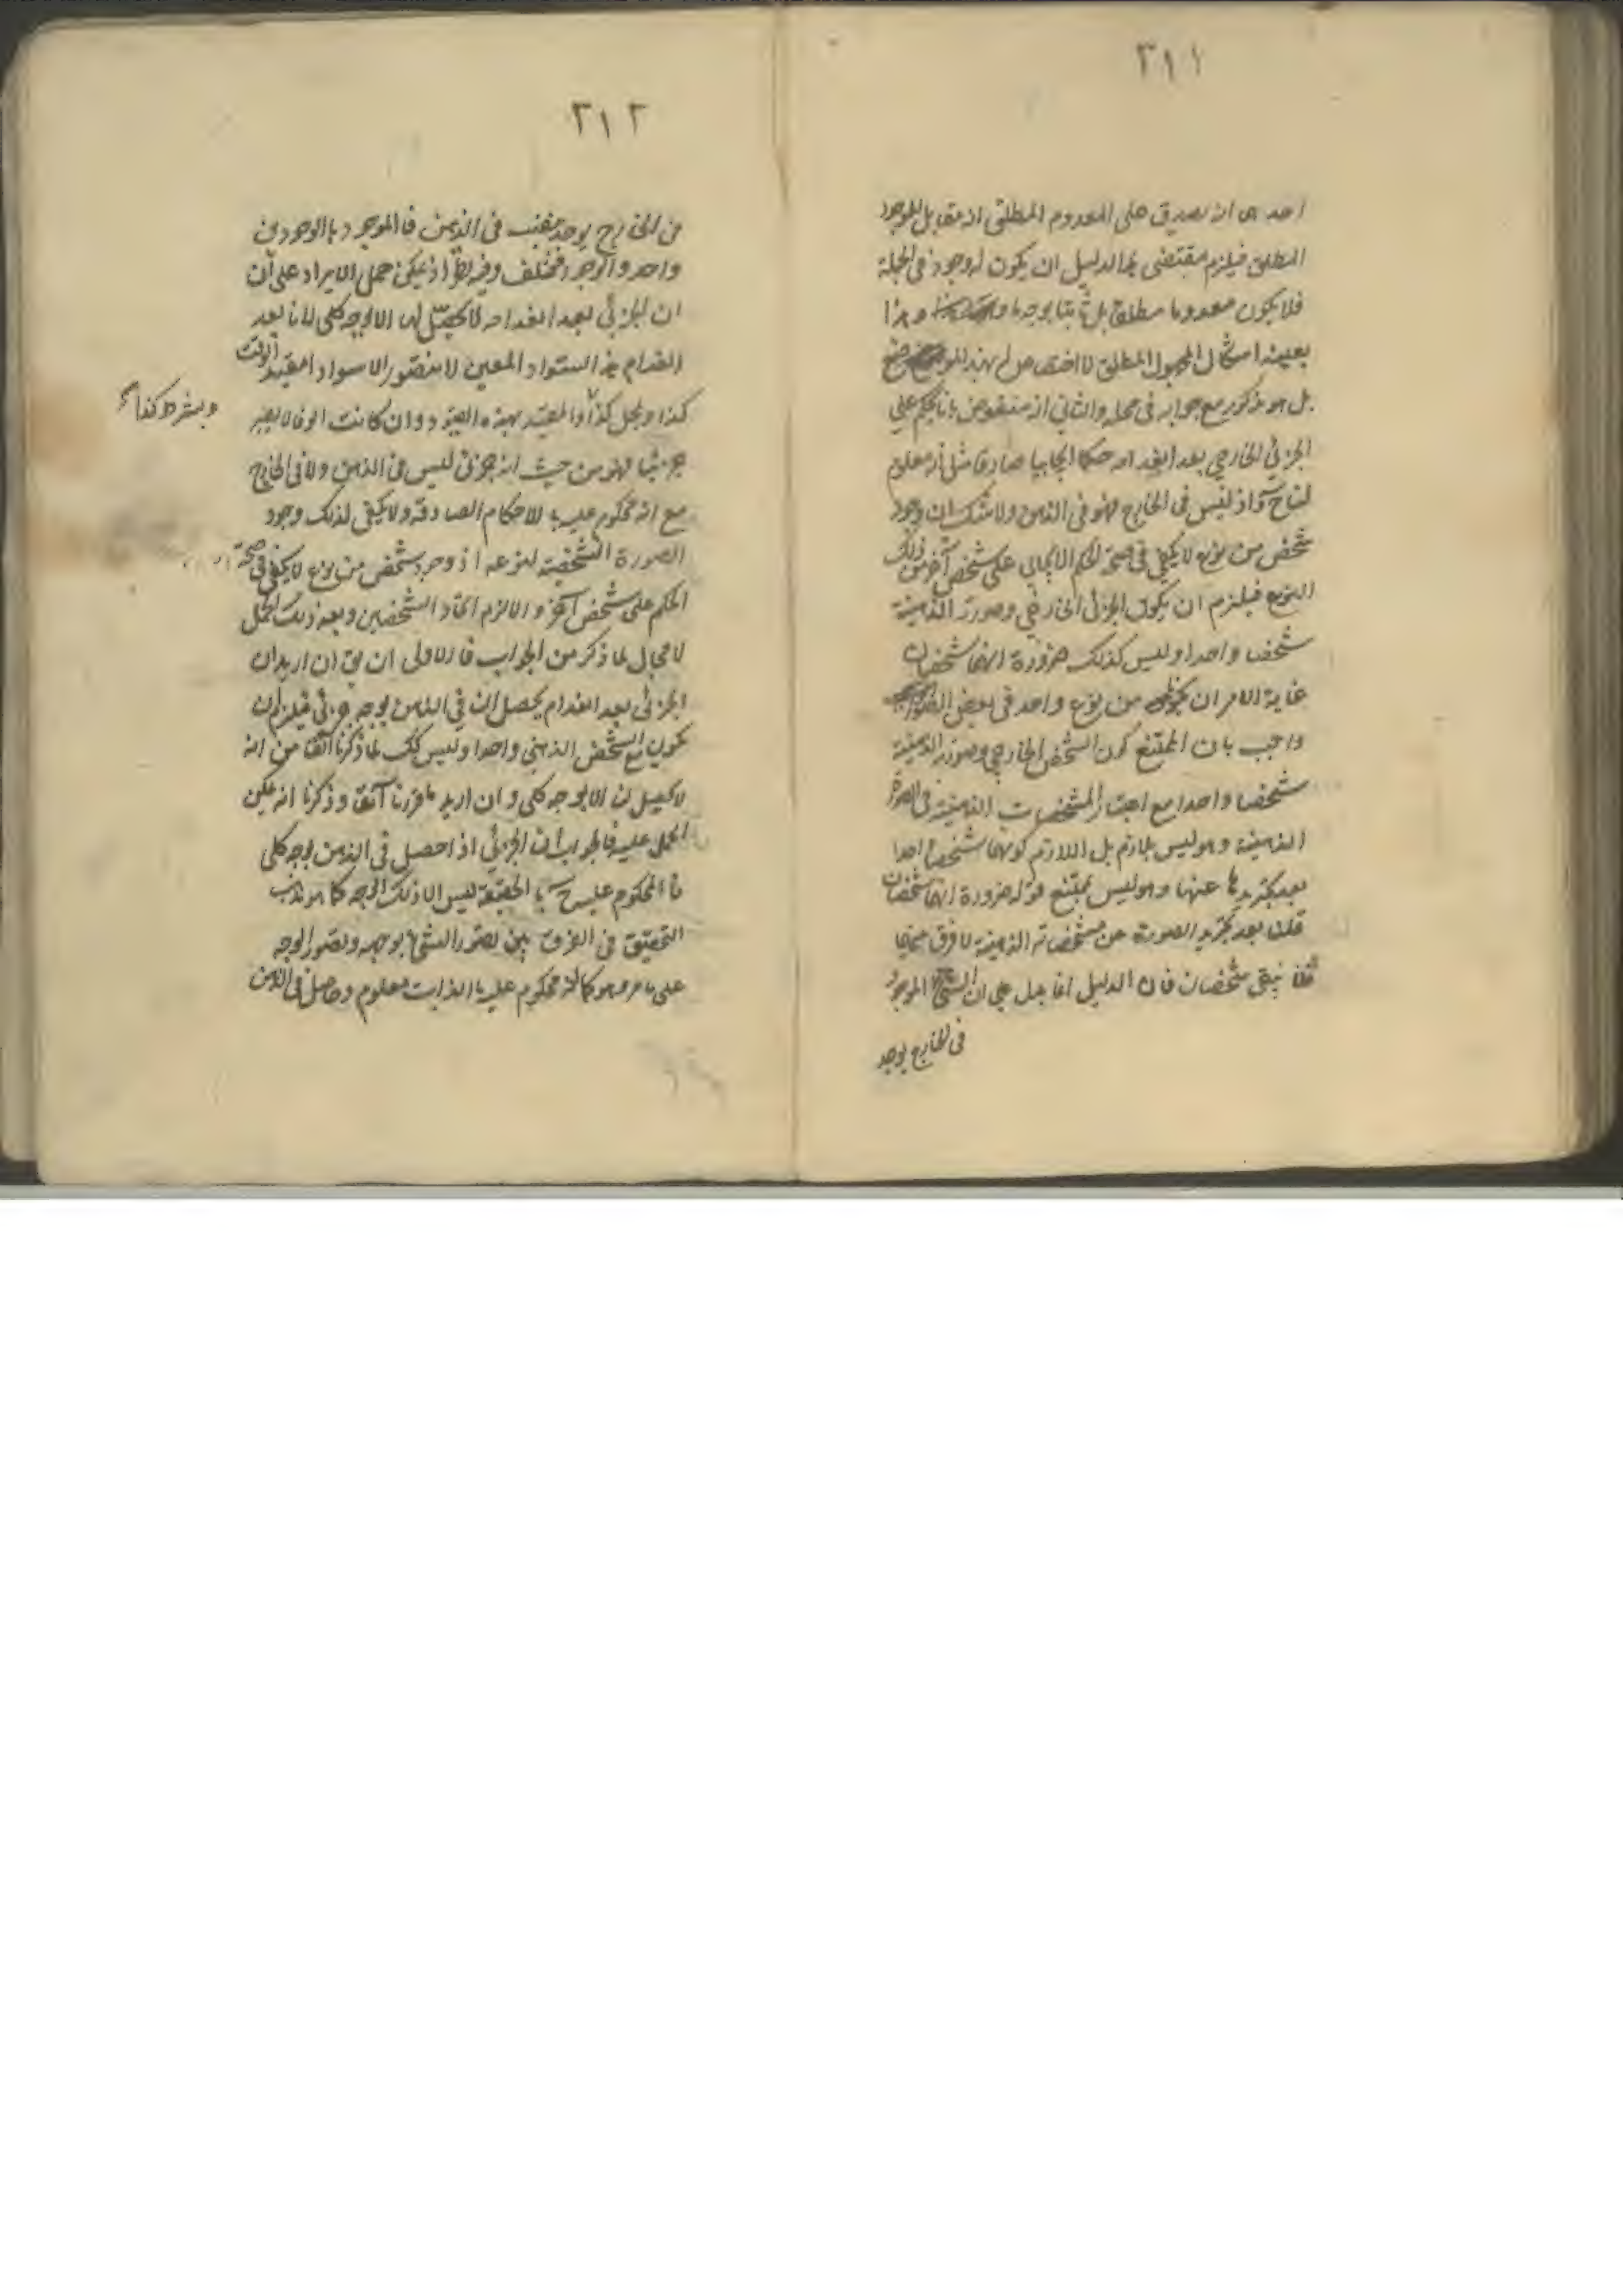 ٣١١
احدها انه يصدق على المعدوم المطلق انه مقابل للموجود
المطلق فيلزم بمقتضى هذا الدليل ان يكون له وجود في الجملة
فلا يكون معدوما مطلقا بل ثابتا بوجه ما وهذا
بعينه اشكال المجهول المطلق لا اختصاص له بهذا الموضع
بل هو مذكور مع جوابه في محله والثاني انه منقوض بانا نحكم على
الجزئي الخارجي بعد انعدامه حكما ايجابيا صادقا مثل انه معلوم
لنا ح واذ ليس في الخارج فهو في الذهن ولا شك ان وجود
شخص من نوع لا يكفي في صحة الحكم الايجابي على شخص آخر من ذلك
النوع فيلزم ان يكون الجزئي الخارجي وصورته الذهنية
شخصا واحدا وليس كذلك ضرورة انهما شخصان
غاية الامر ان من نوع واحد في بعض الصور
واجيب بان الممتنع كون الشخص الخارجي وصورته الذهنية
شخصا واحدا مع اعتبار المشخصات الذهنية في الصورة
الذهنية وهو ليس بلازم بل اللازم كونهما شخصا واحدا
بعد تجريدها عنها وهو ليس بممتنع قوله ضرورة انهما شخصان
قلنا بعد تجريد الصورة عن مشخصاته الذهنية لا فرق بينهما
فلا يبقى شخصان فان الدليل انما يدل على ان الشيء الموجود
في الخارج يوجد
٣١٢
في الخارج يوجد بعينه في الذهن فالموجود بالوجودين
واحد والوجود مختلف وفيه نظر اذ يمكن حمل الايراد على ان
ان الجزئي بعد انعدامه لا يحصل لنا الا بوجه كلي لانا بعد
انعدام هذا السواد المعين لا نتصور الا سوادا مقيدا بوقت
كذا ومحل كذا والمقيد بهذه القيود وان كانت الوفا لا يصير
وبشرط كذا صح
جزئيا فهو من حيث انه جزئي ليس في الذهن ولا في الخارج
مع انه محكوم عليه بالاحكام الصادقة ولا يكفي لذلك وجود
الصورة الشخصية لنوعه اذ وجود شخص من نوع لا يكفي في صحة
الحكم على شخص آخر والا لزم اتحاد الشخصين وبعد ذلك الحمل
لا مجال لما ذكر من الجواب فالاولى ان يق ان اريد ان
الجزئي بعد انعدامه يحصل لنا في الذهن بوجه جزئي فيلزم ان
يكون مع الشخص الذهني واحدا وليس كك لما ذكرنا آنفا من انه
لا يحصل لنا الا بوجه كلي وان اريد ما قررنا آنفا وذكرنا انه يمكن
الحمل عليه فالجواب ان الجزئي اذا حصل في الذهن بوجه كلي
فالمحكوم عليه ح بالحقيقة ليس الا ذلك الوجه كما هو مذهب
التحقيق في الفرق بين تصور الشيء بوجهه وتصور الوجه
على ما مر وهو كما انه محكوم عليه بالذات معلوم وحاصل في الذهن